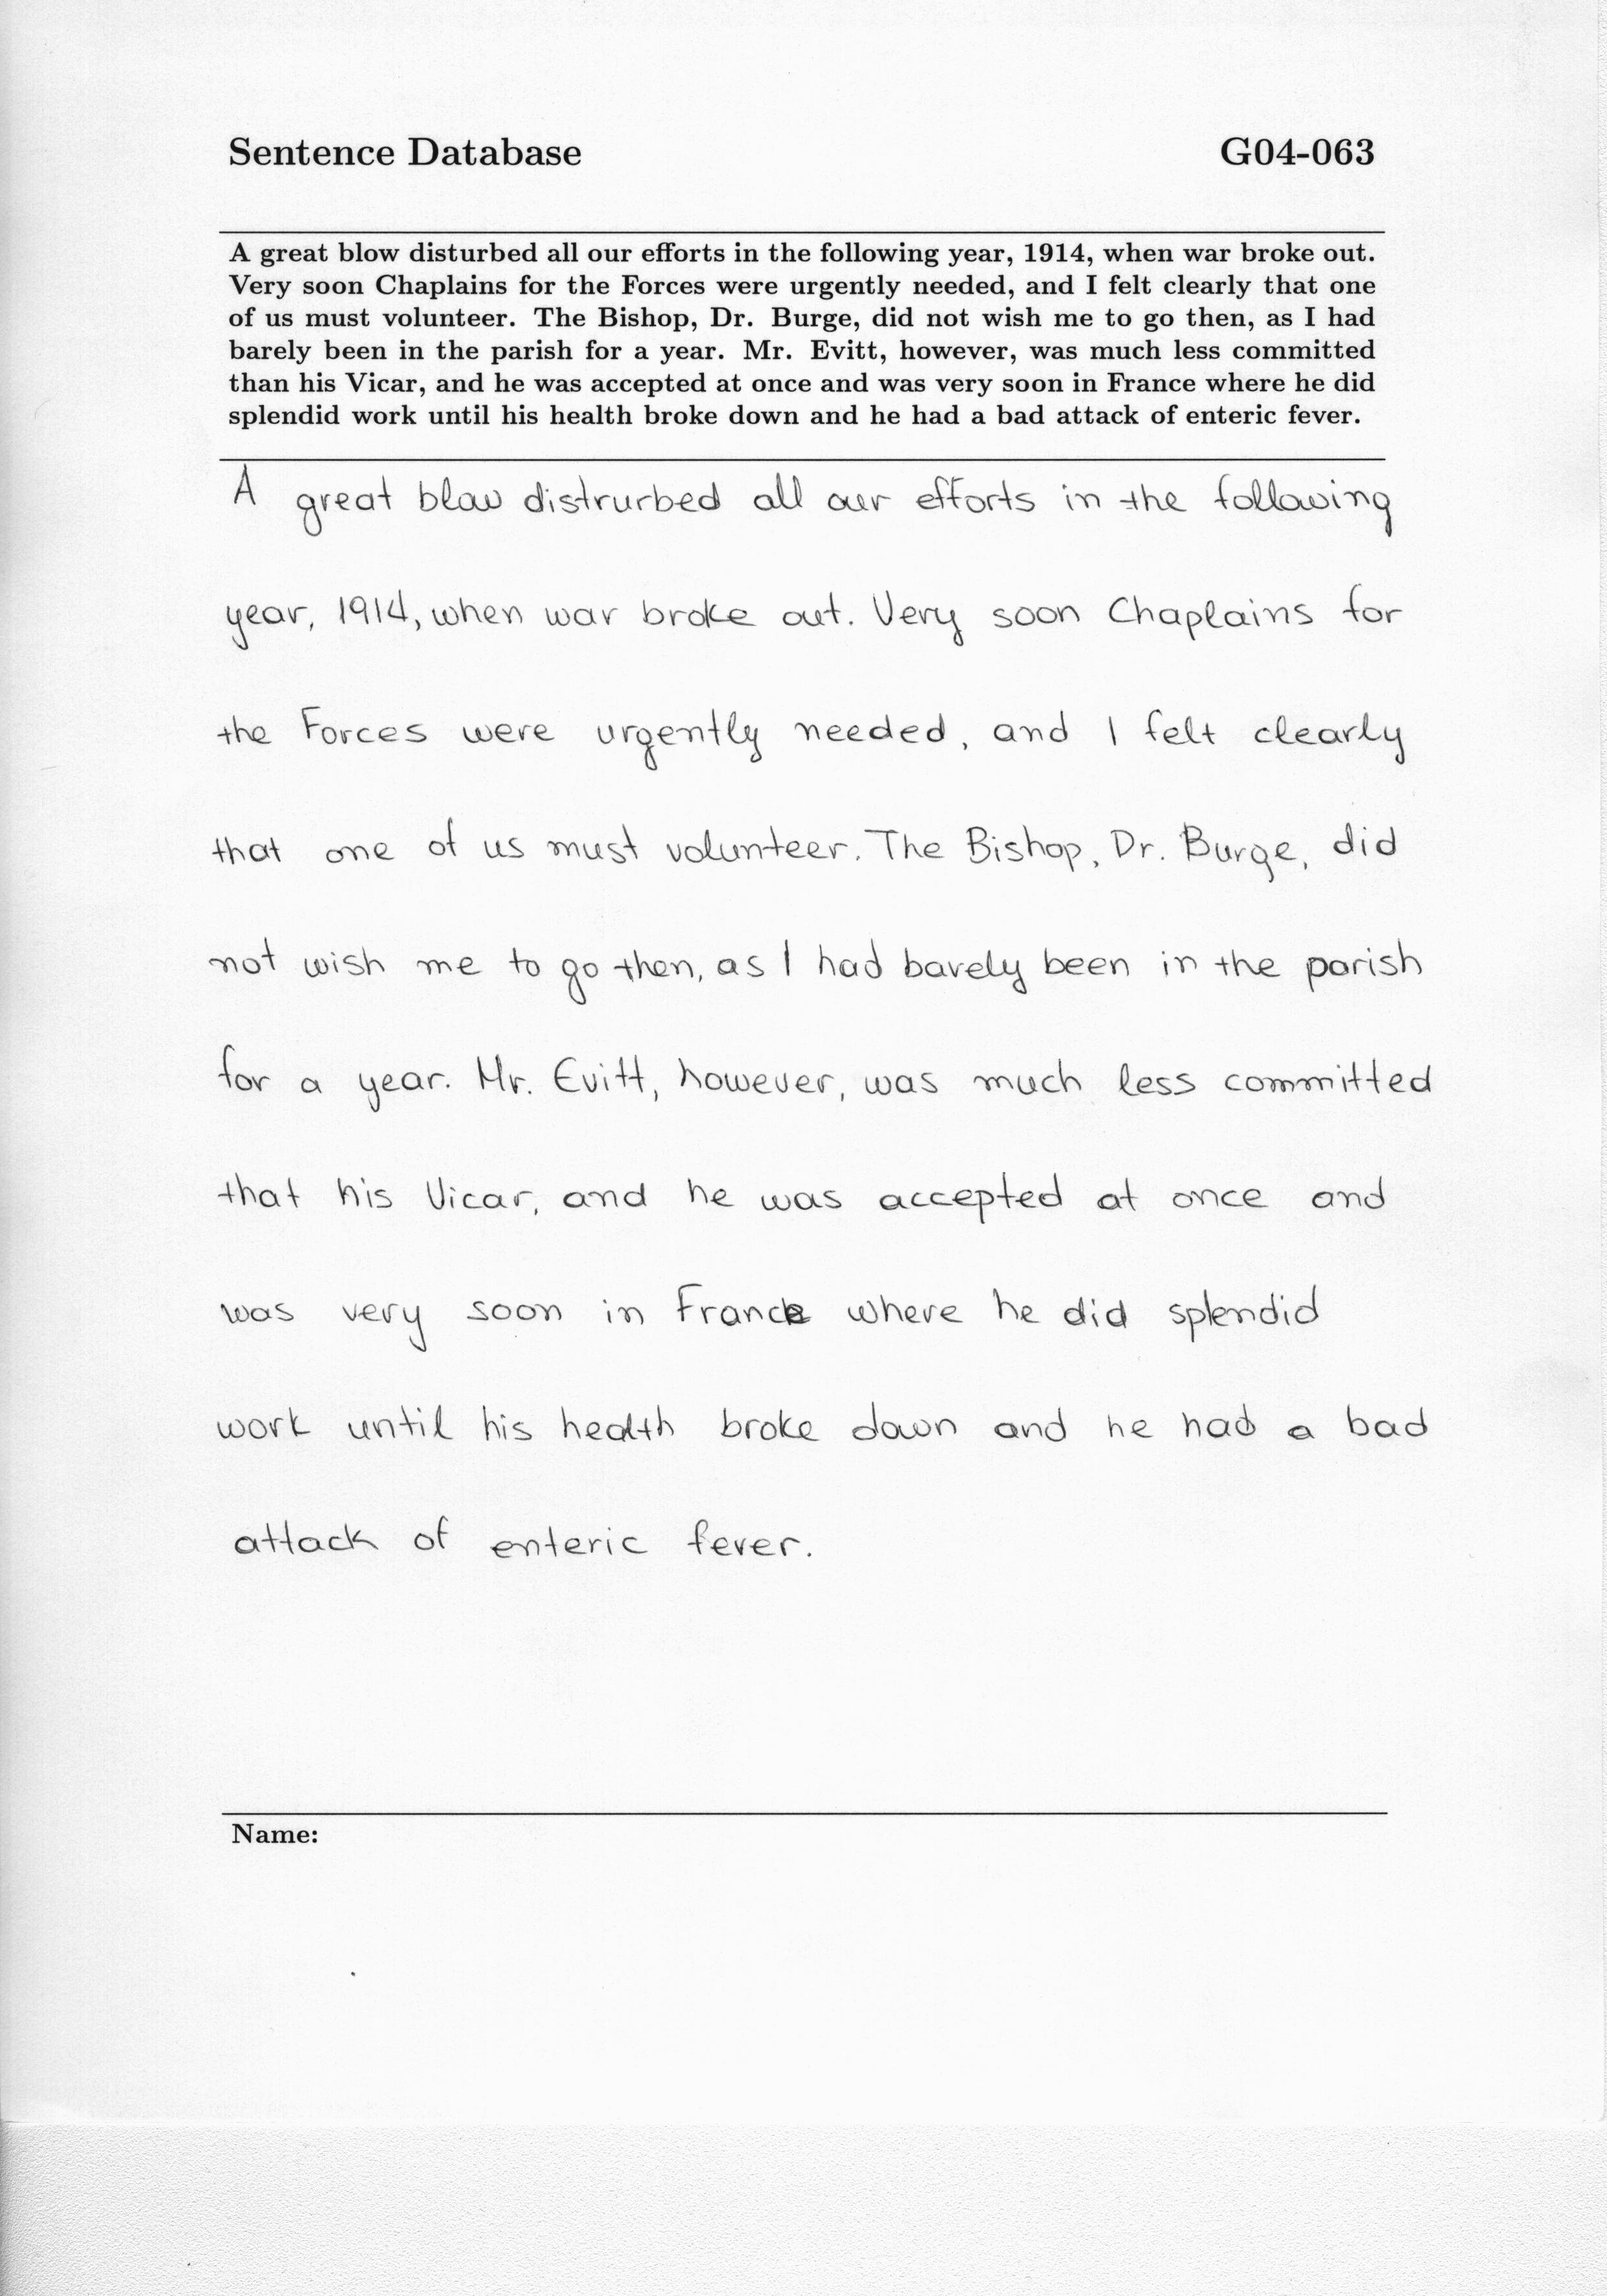 Sentence Database G04-063
A great blow disturbed all our efforts in the following year, 1914, when war broke out.
Very soon Chaplains for the Forces were urgently needed, and I felt clearly that one
of us must volunteer. The Bishop, Dr. Burge, did not wish me to go then, as I had
barely been in the parish for a year. Mr. Evitt, however, was much less committed
than his Vicar, and he was accepted at once and was very soon in France where he did
splendid work until his health broke down and he had a bad attack of enteric fever.
A great blow distrurbed all our efforts in the following
year, 1914, when war broke out. Very soon Chaplains for
the Forces were urgently needed, and I felt clearly
that one of us must volunteer. The Bishop, Dr. Burge, did
not wish me to go then, as I had barely been in the parish
for a year. Mr. Evitt, however, was much less committed
that his Vicar, and he was accepted at once and
was very soon in France where he did splendid
work until his health broke down and he had a bad
attack of enteric fever.
Name: